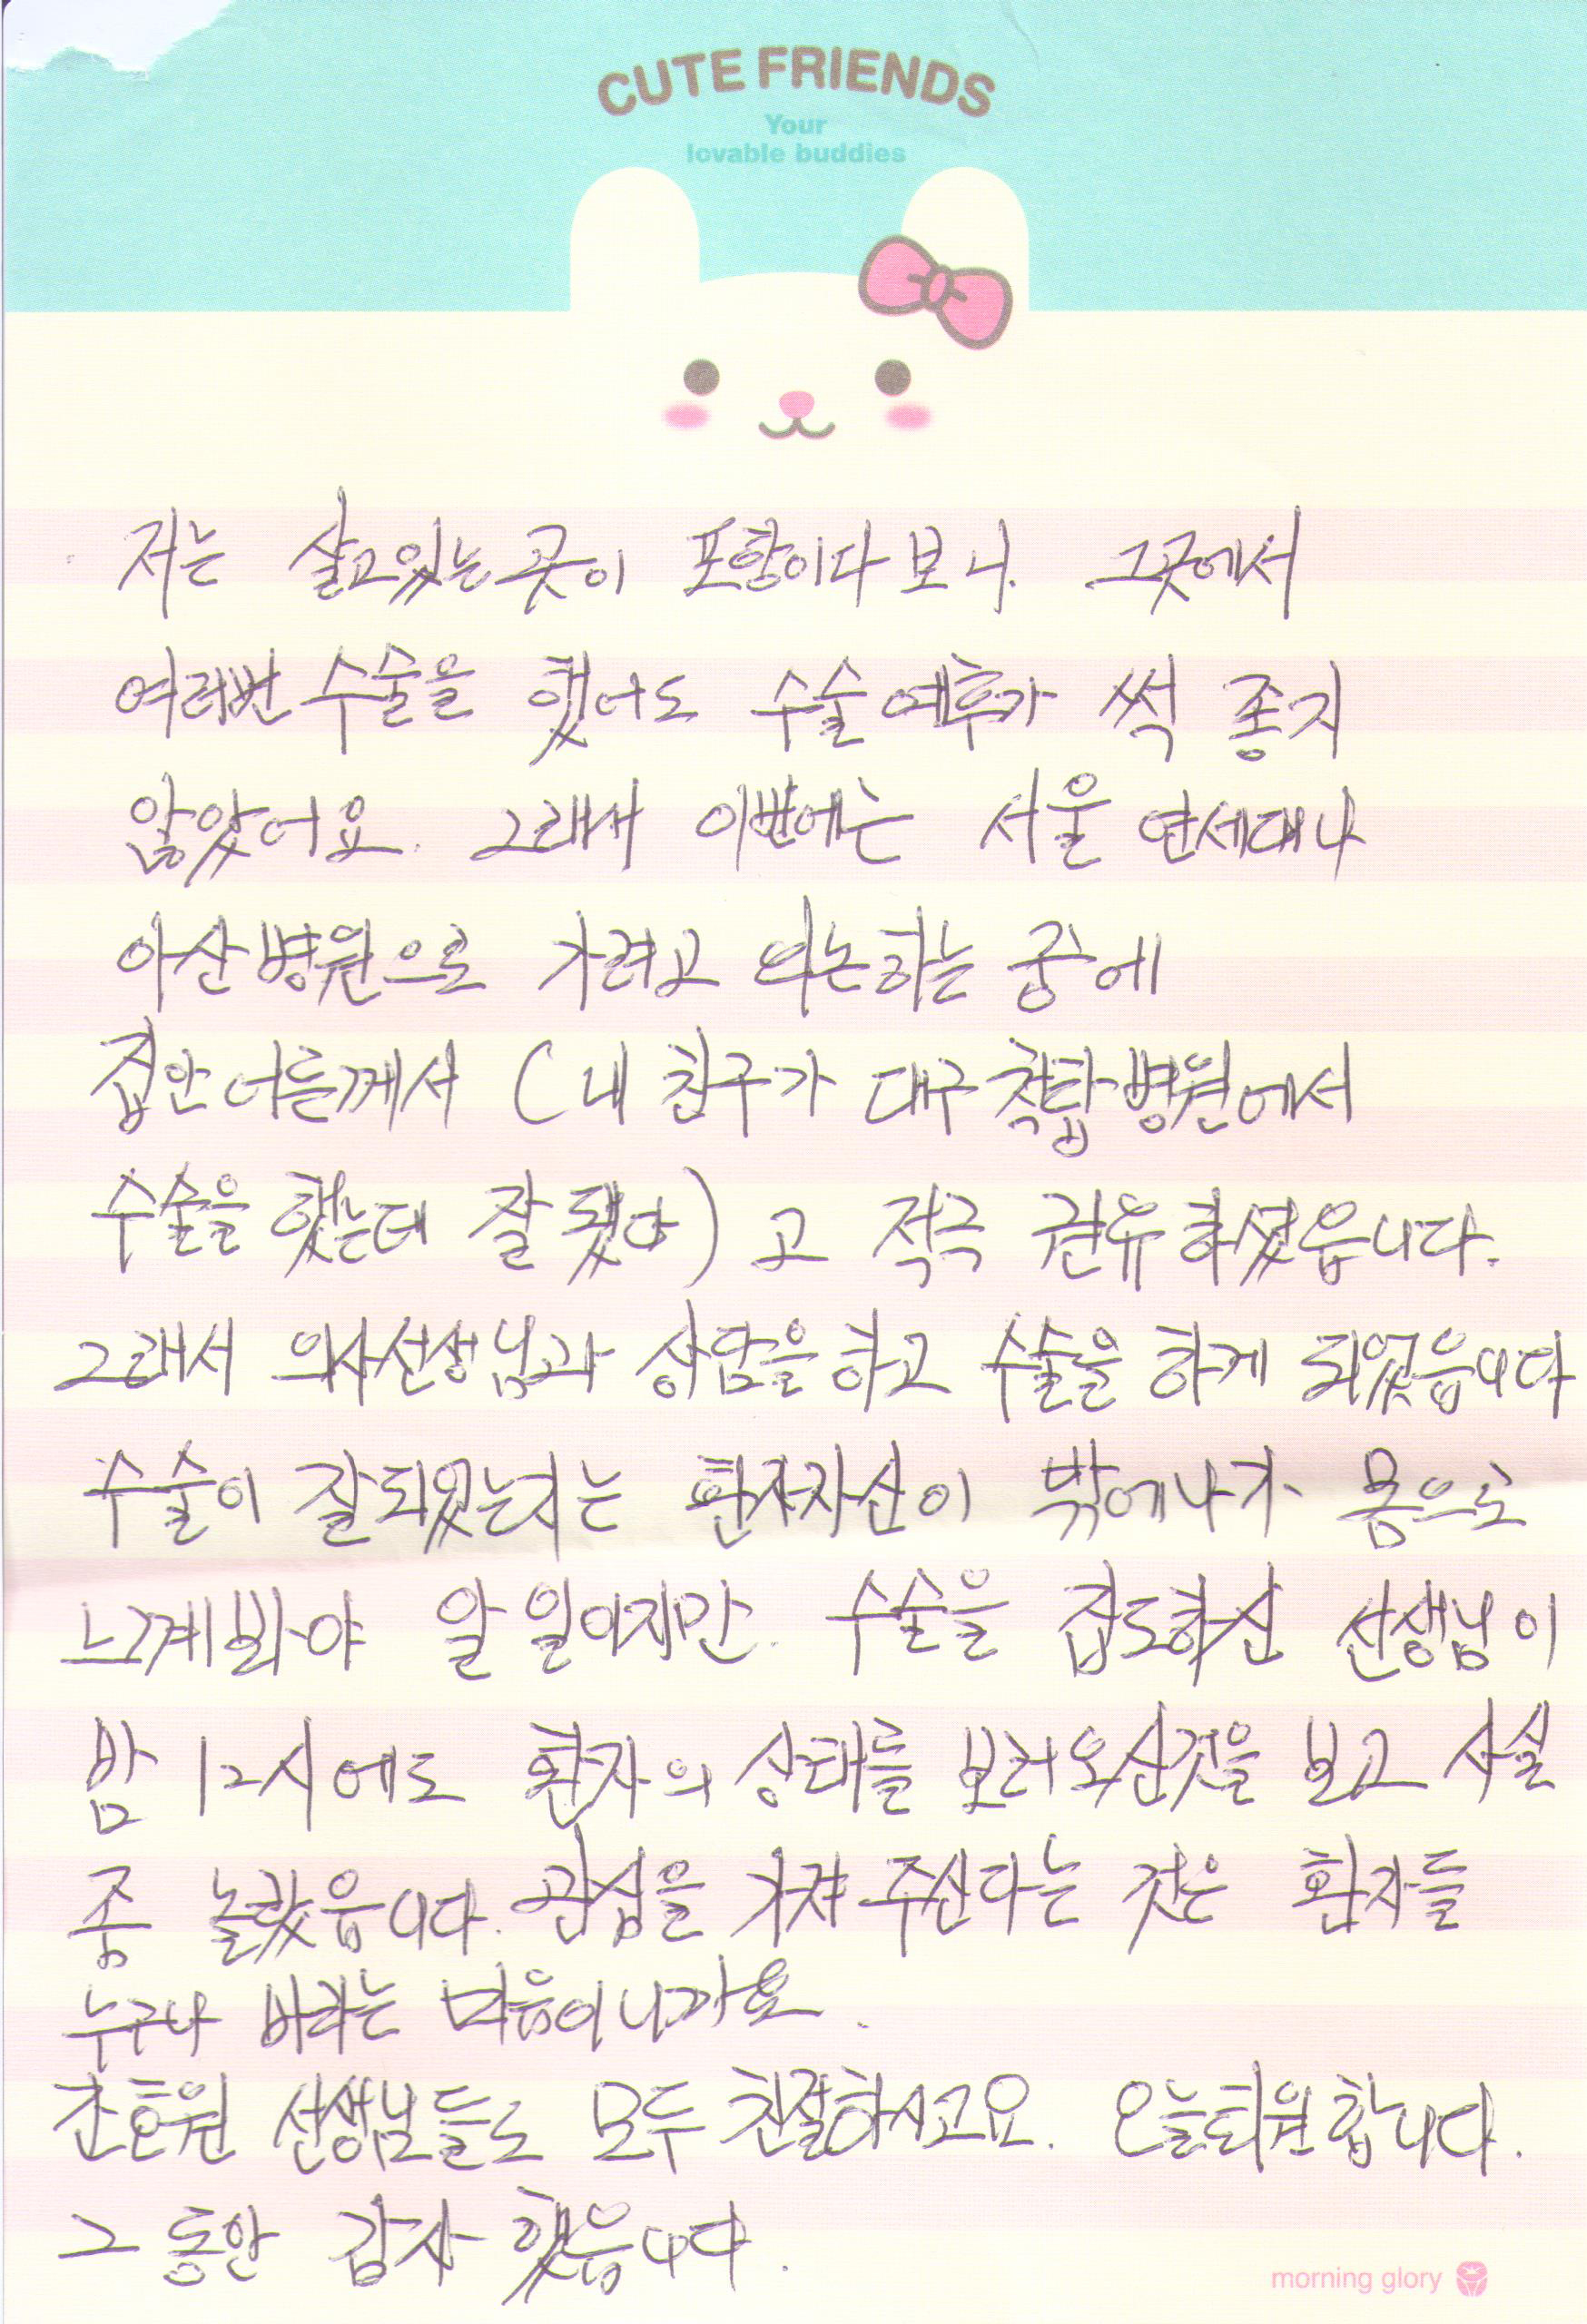 CUTE FRIENDS
Your
lovable buddies
저는 살고있는 곳이 포항이다 보니. 그곳에서
여러번 수술을 했어도 수술예후가 썩 좋지
않았어요. 그래서 이번에는 서울 연세대나
아산병원으로 가려고 의논하는 중에
집안 어른께서 (내 친구가 대구 척탑병원에서
수술을 했는데 잘 됐어) 고 적극 권유하셨읍니다.
그래서 의사선생님과 상담을 하고 수술을 하게 되었읍니다
수술이 잘되었는지는 환자자신이 밖에나가 몸으로
느껴봐야 알 일이지만. 수술을 집도하신 선생님이
밤 12시에도 환자의 상태를 보러오신것을 보고 사실
좀 놀랐읍니다. 관심을 가져주신다는 것은 환자들
누구나 바라는 마음이니까요.
간호원 선생님들도 모두 친절하시고요. 오늘퇴원합니다.
그동안 감사했음니다.
morning glory